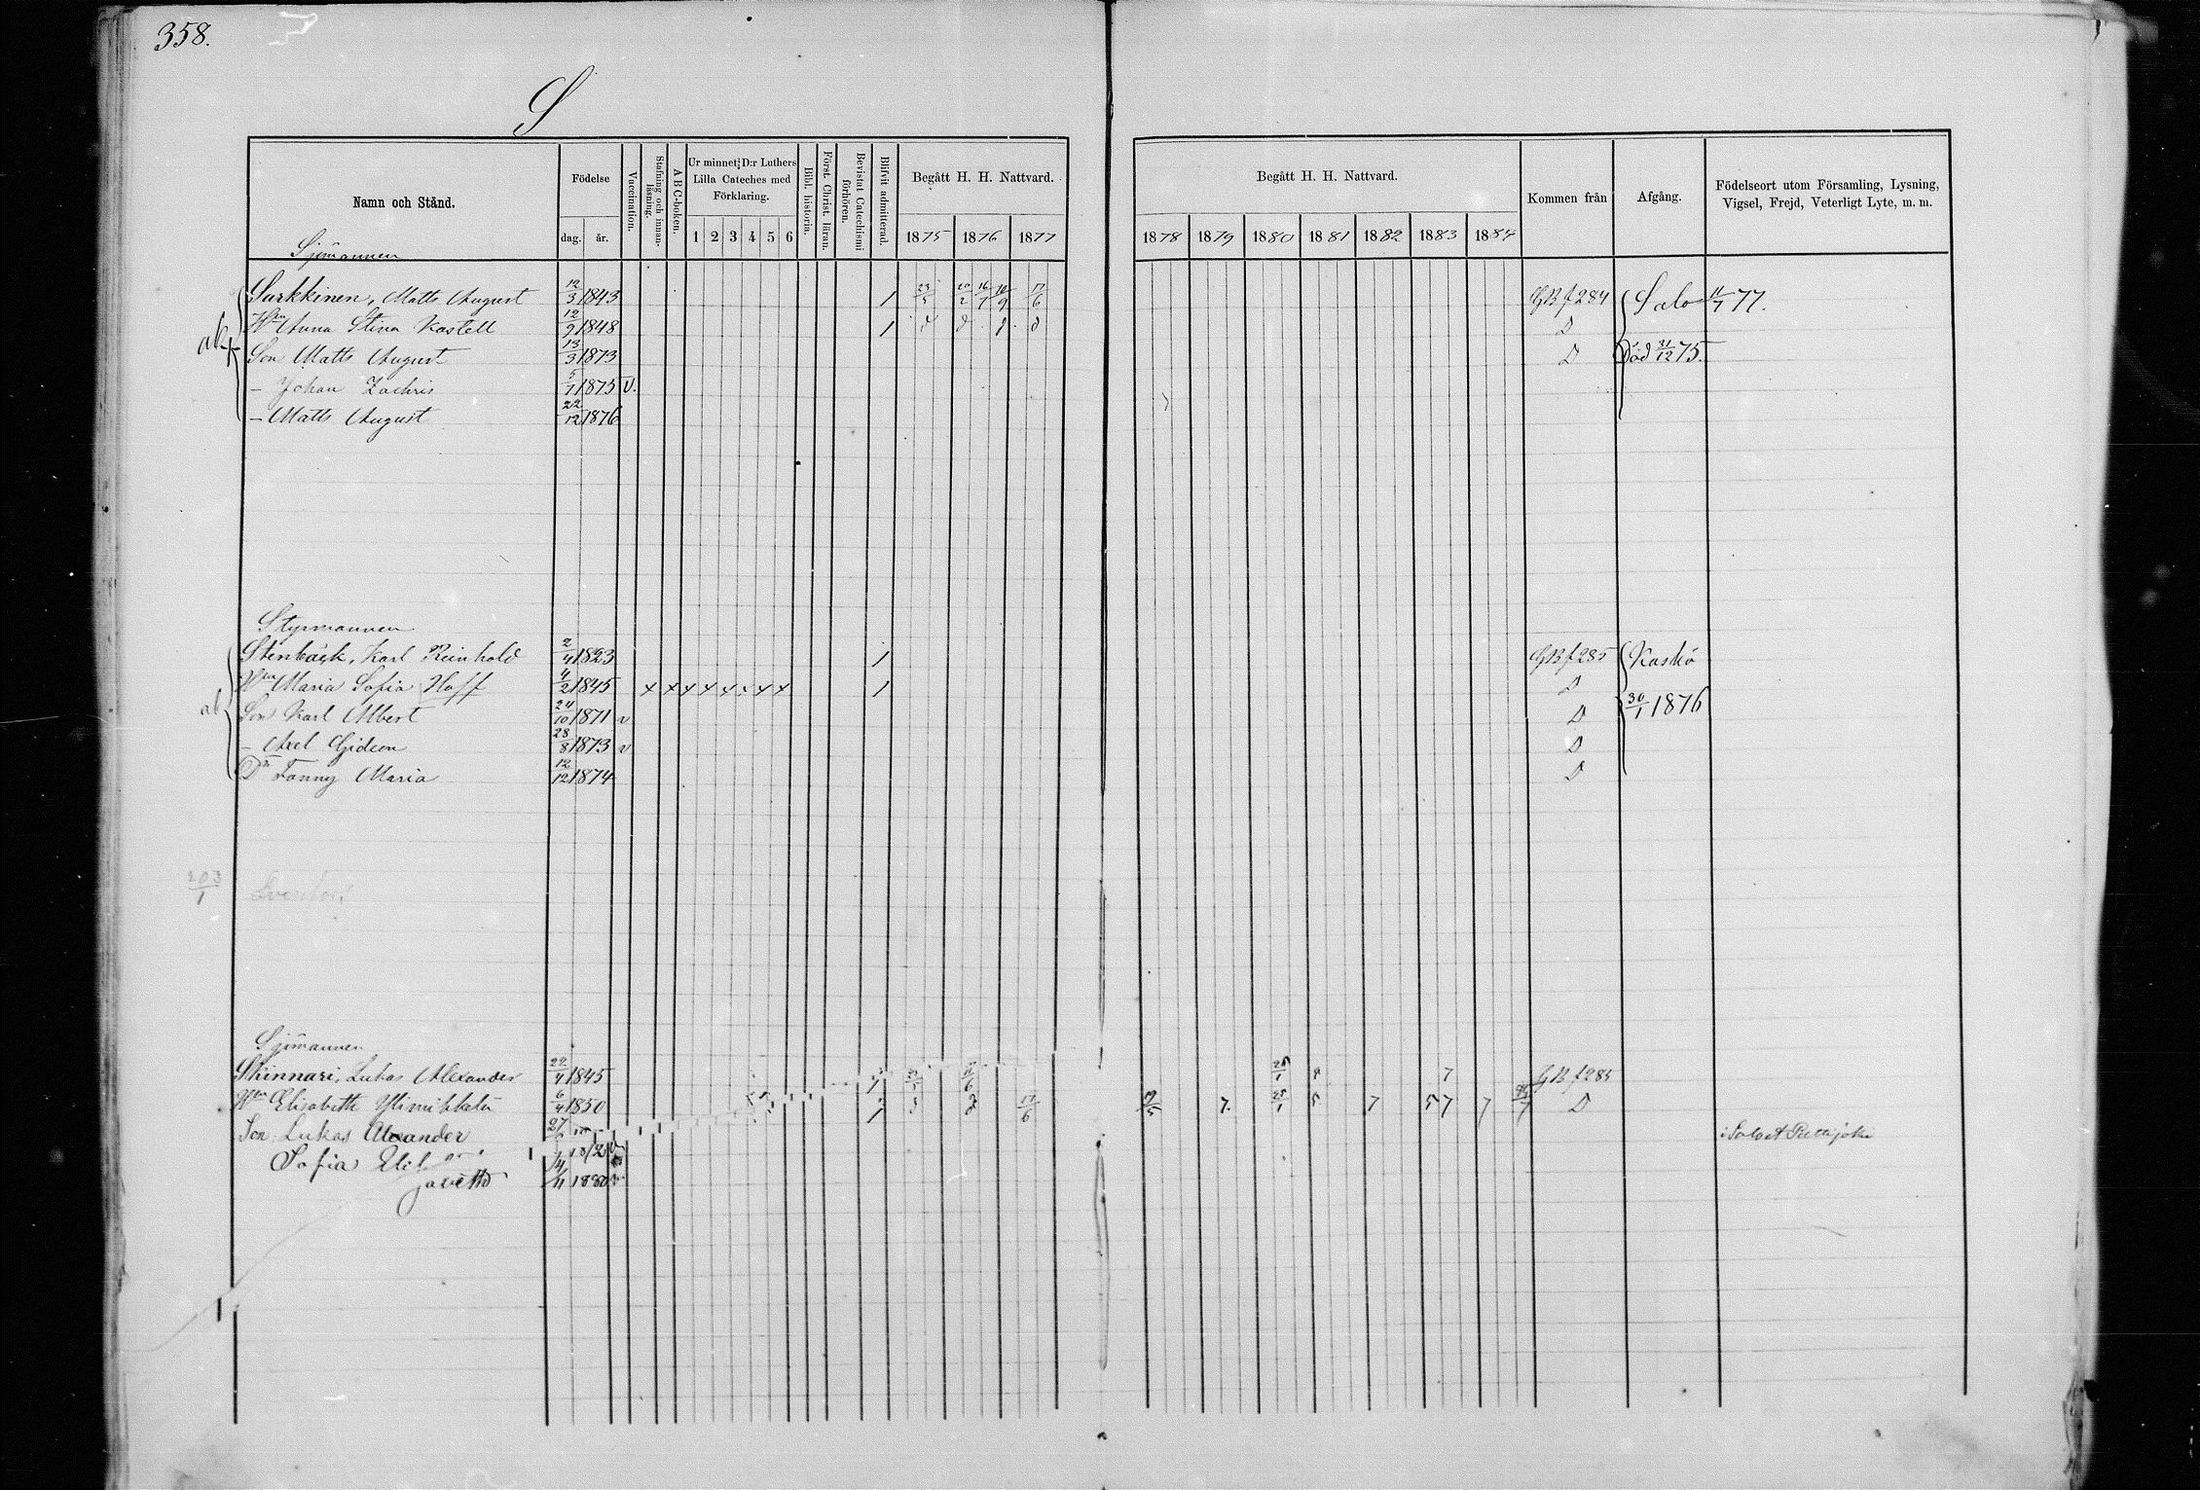 358.
S
Namn och Stånd. Födelse dag. år. Vaccination. Stafning och innanläsning. A B C-boken. Ur minnet: D:r Luthers Lilla Cateches med Förklaring. 1 2 3 4 5 6 Bibl. historia. Först. Christ. läran. Bevistat Catechismi förhören. Blifvit admitterad. Begått H. H. Nattvard. 1875 1876 1877
Begått H. H. Nattvard. 1878 1879 1880 1881 1882 1883 1884 Kommen från Afgång. Födelseort utom Församling, Lysning, Vigsel, Frejd, Veterligt Lyte, m. m.
Sjömannen
Surkkinen, Matts August 12/3 1843 1 20/2 16/7 17/6 GB f 284 Salo 11/7 77.
Hn Anna Stina Kastell 12/9 1848 1 D
Son Matts August 13/3 1873 D Död 31/12 75.
- Johan Zachris 5/1 1875 v.
- Matts August 22/12 1876
Styrmannen
Stenbäck, Karl Reinhold 2/4 1823 1 GB f 285 Kaskö
Hn Maria Sofia Hoff 4/2 1845 x x x x x x x x 1 D
Son Karl Albert 24/10 1871 v D 30/1 1876
- Axel Gideon 28/8 1873 v D
Dr Fanny Maria 12/12 1874 D
203/1
Sjömannen
Skinnari, Lukas Alexander 22/4 1845 1 7 GB f 285
Hn Elisabeth Ylimikkala 6/4 1850 1 17/6 7. 25/1 5 7 5 7 7 D
Son Lukas Alexander 27
Sofia Eli
11 1880